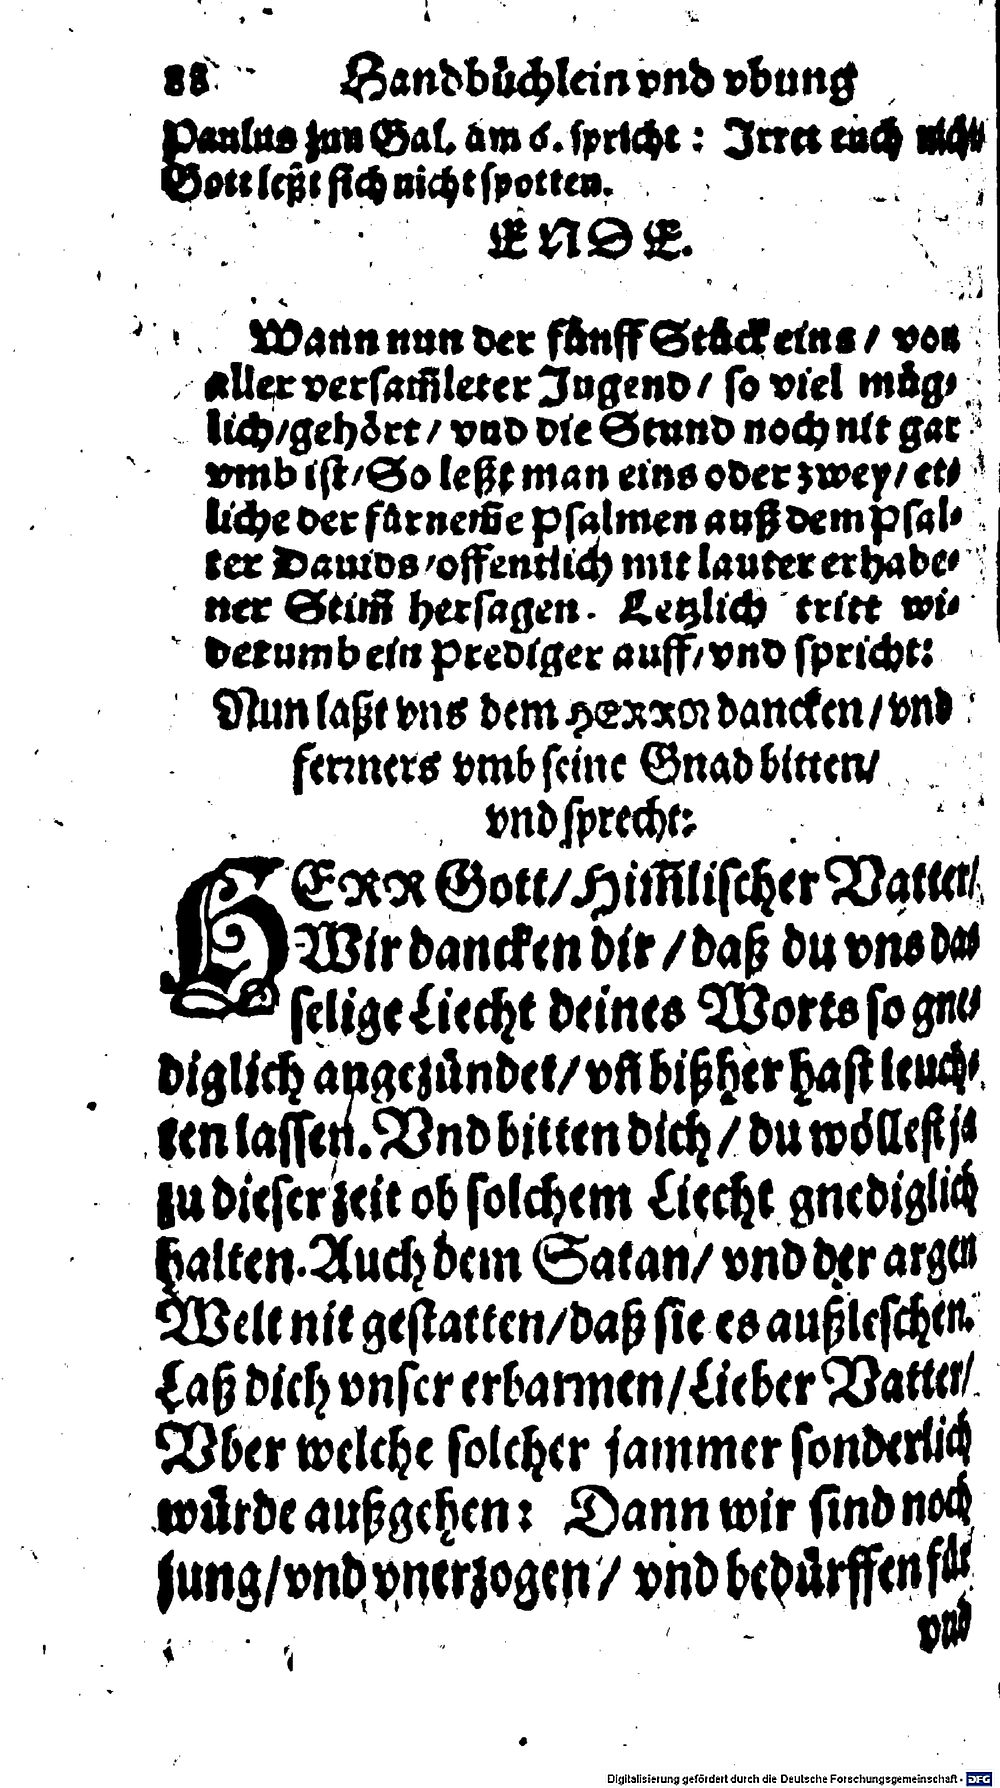 88 Handbüchlein vnd vbung
Paulus zun Gal. am 6. spricht: Irret euch nicht
Gott leßt sich nicht spotten.
ENDE.
Wann nun der fünff Stück eins / von
aller versam̃leter Jugend / so viel müg-
lich/gehört / vnd die Stund noch nit gar
vmb ist/So leßt man eins oder zwey/ et-
liche der fürnem̃e Psalmen auß dem Psal-
ter Dauids/offentlich mit lauter erhabe-
ner Stim̃ hersagen. Letzlich tritt wi-
derumb ein Prediger auff/vnd spricht:
Nun laßt vns dem HERRN dancken/vnd
ferrners vmb seine Gnad bitten/
vnd sprecht:
HERR Gott/Him̃lischer Vatter/
Wir dancken dir /daß du vns das
selige Liecht deines Worts so gne-
diglich angezündet/vñ bißher hast leuch-
ten lassen. Vnd bitten dich / du wöllest ja
zu dieser zeit ob solchem Liecht gnediglich
halten. Auch dem Satan/ vnd der argen
Welt nit gestatten/daß sie es außleschen.
Laß dich vnser erbarmen/Lieber Vatter/
Vber welche solcher jammer sonderlich
würde außgehen: Dann wir sind noch
jung/vnd vnerzogen / vnd bedürffen für
vnd
Digitalisierung gefördert durch die Deutsche Forschungsgemeinschaft - DFG